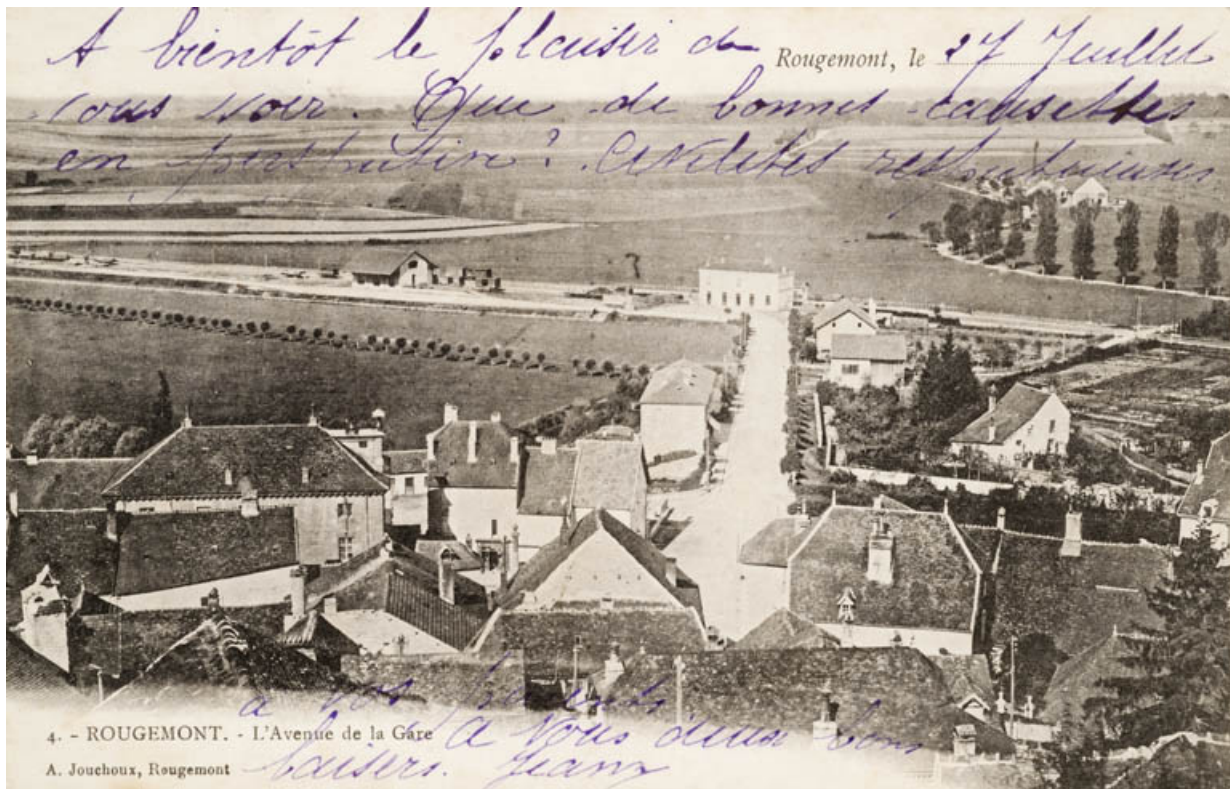 A bientôt le plaisir de
Rougemont, le 27 Juillet
vous voir. Que de bonnes causettes
en perspective? Amitiés respectueuses
à vos parents
4. - ROUGEMONT. - L'Avenue de la Gare
A vous deux bons
A. Jouchoux, Rougemont
baisers. Jeanz